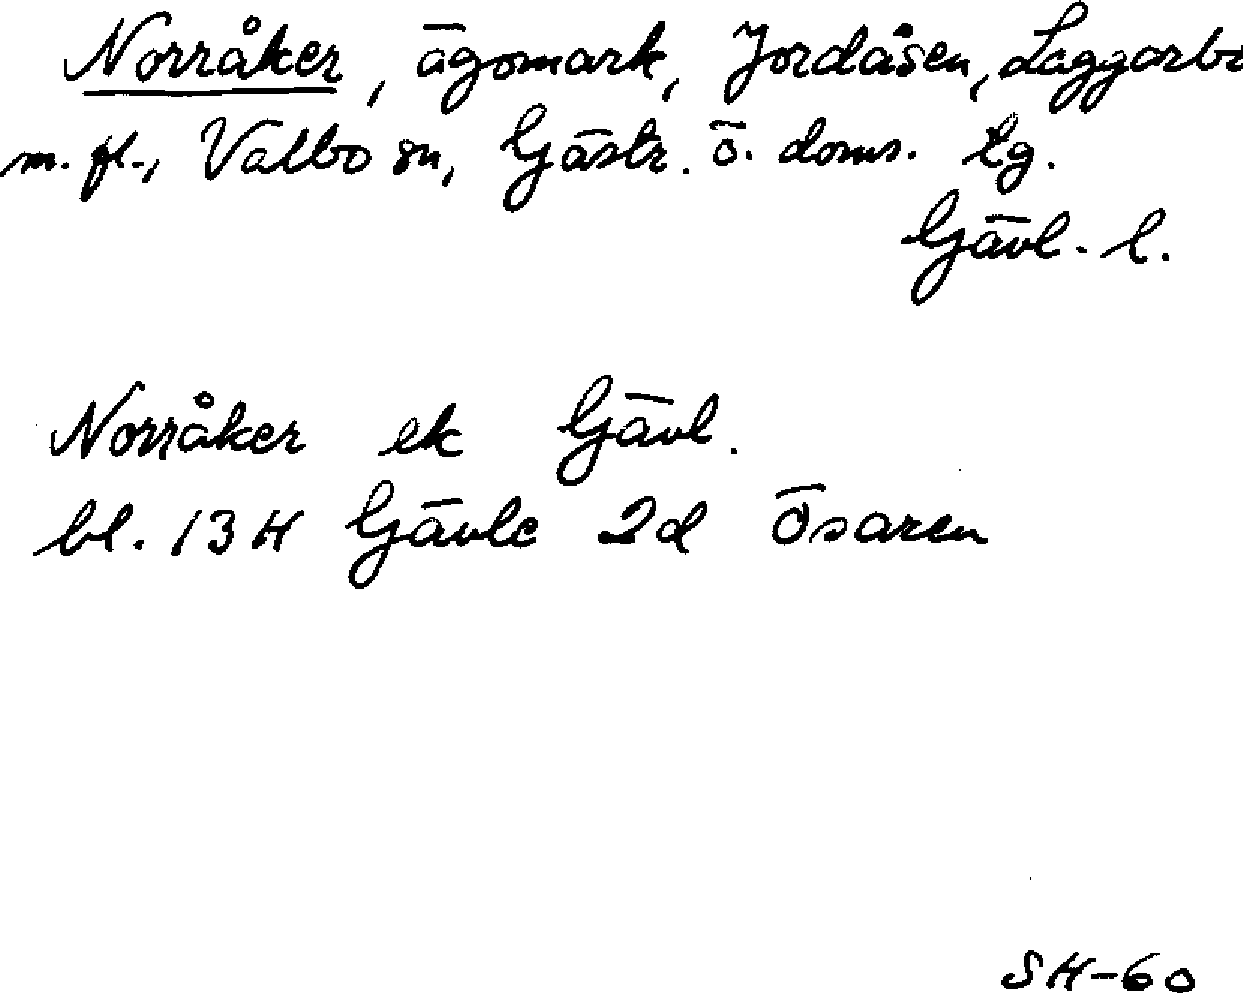 Norråker, ägomark, Jordåsen, Laggarbo
m. fl., Valbo sn, Gästr. ö. doms. tg.
Gävl. l.
Norråker ek Gävl.
bl. 13H Gävle 2d Ösaren
SH-60